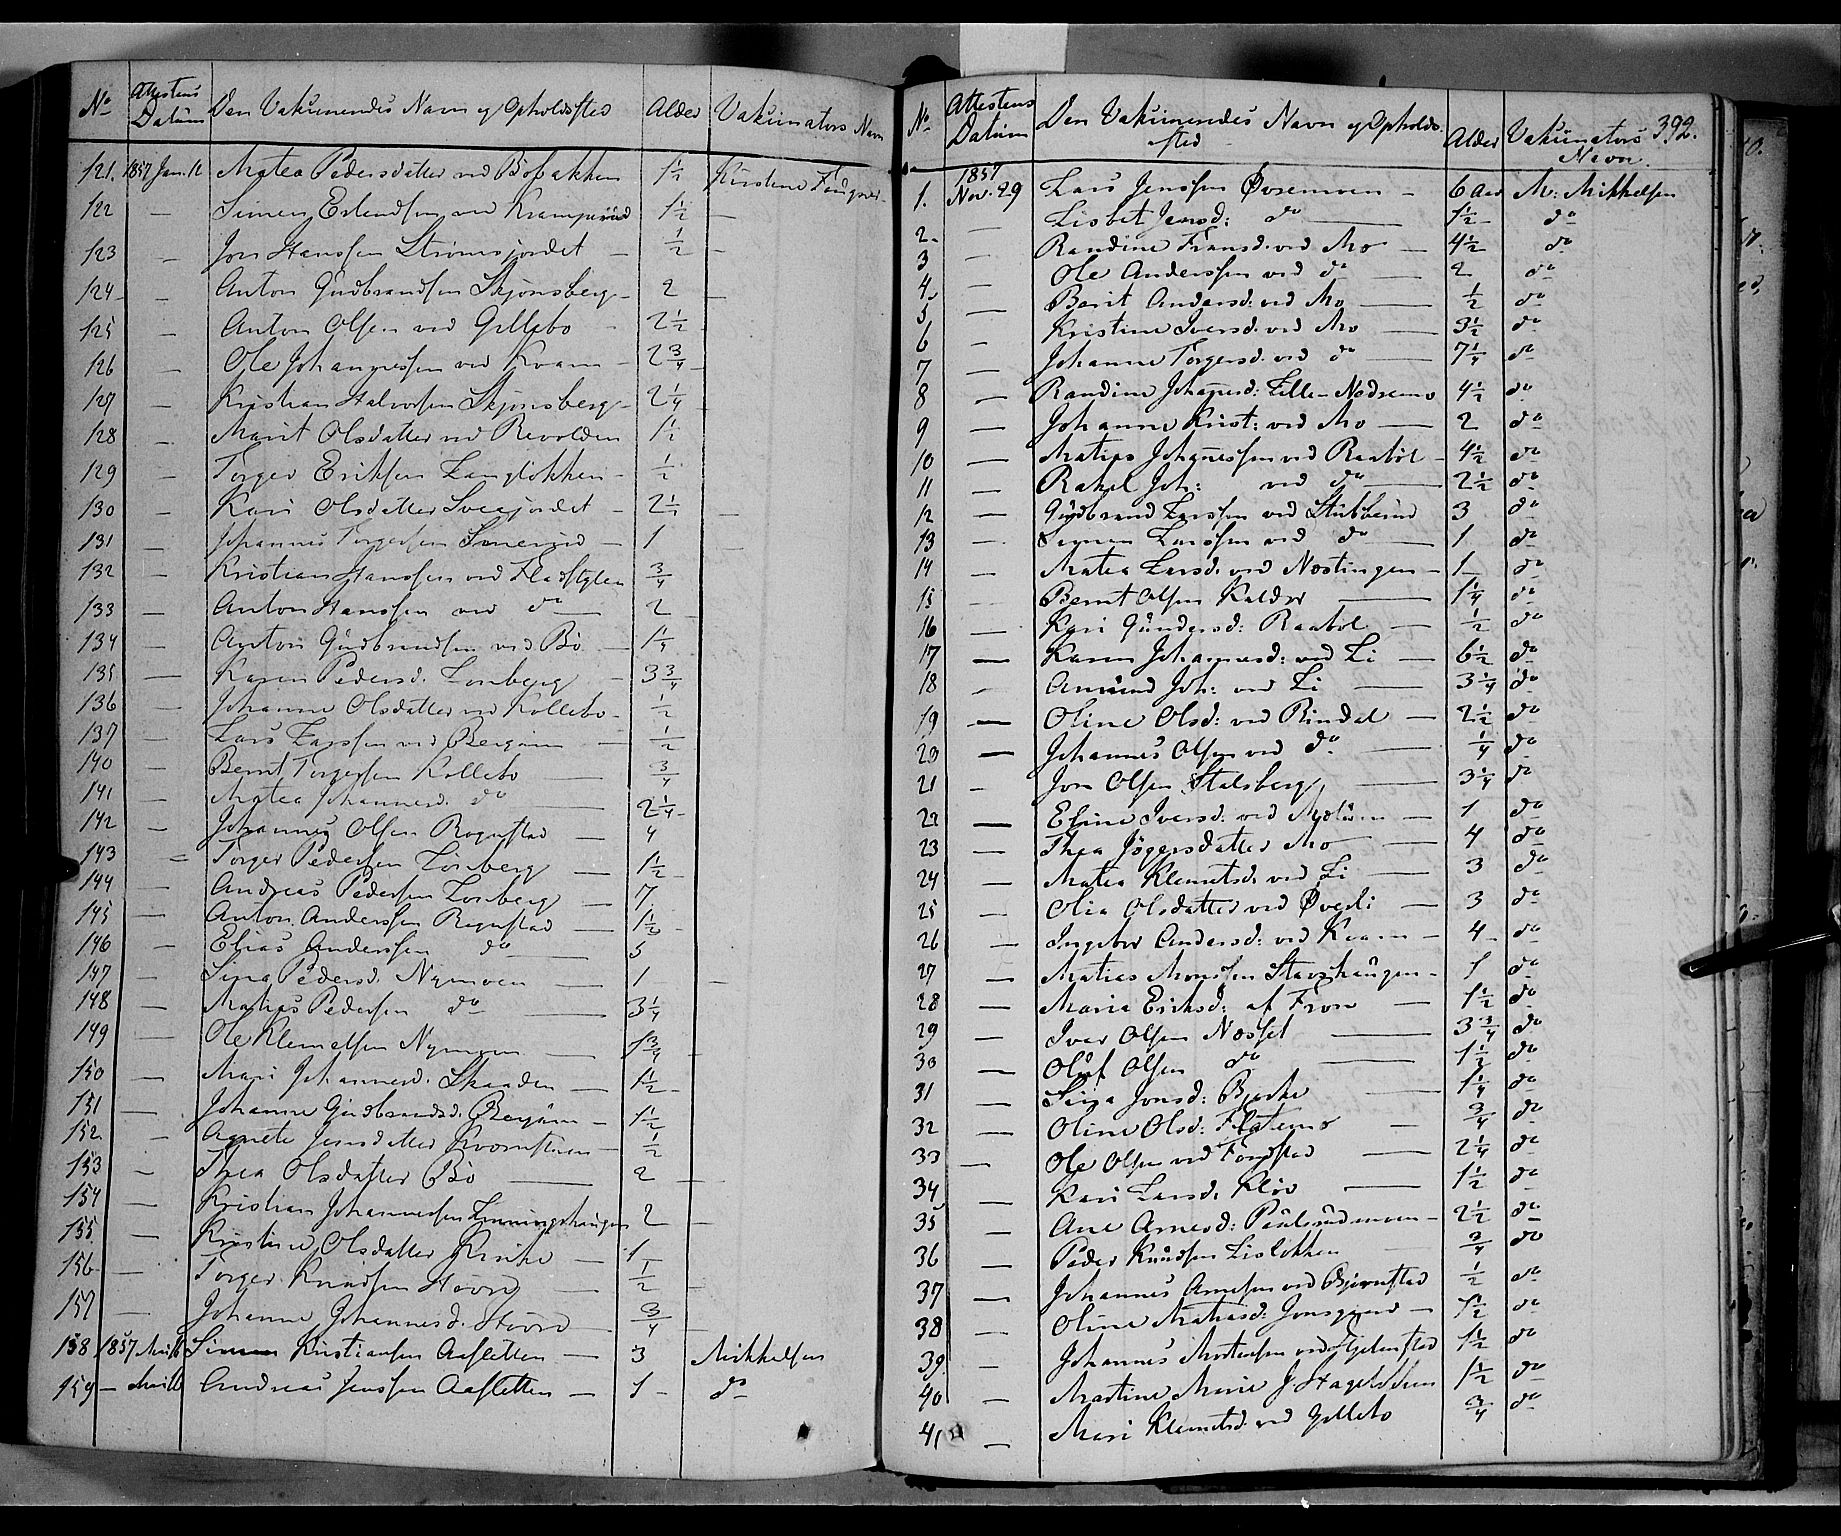 No Attestens Datum Den Vakcinerendes Navn og Opholdssted Alder Vakcinators Navn
121. 1857 Jan. 12 Matea Pedersdatter ved Böbakken 1½ Kirstine
122 — Simen Erlendsen ved 1½ —
123 — Jon Hanssen Strömsjordet — ½
124 — Anton Gudbrandsen Skjönsberg — 2 —
125 — Anton Olsen ved Gillebo — 2½ —
126 — Ole Johannessen ved Kvam — 2¾ —
127 — Kristian Halvorsen Skjönsberg — 2¼ —
128 — Marit Olsdatter ved Revolden 1½
129 — Torger Eriksen Langlökken — ½
130 — Kari Olsdatter Sveejordet — 2½ —
131 — Johannes Torgersen — 1 —
132 — Kristian Hanssen ved Fladstylen ¾
133 — Anton Hanssen ved do — 2 —
134 — Anton Gudbrandsen ved Bö — 1¼
135 — Karen Pedersd. Lonberg — 3¾
136 — Johanne Olsdatter ved Kollebo — ½
137 — Lars Larssen ved Bergum — ½
140 — Bernt Torgersen Kollebo — ¾
141 — Matea Johannesd. do — 2¼ —
142 — Johannes Olsen Rognstad — 4
143 — Torger Pedersen Lonberg — 1½ —
144 — Andreas Pedersen Lonberg — 7
145 — Anton Anderssen Rognstad — 1½ —
146 — Elias Anderssen do — 5
147 — Sina Pedersd. Nymoen — 1 —
148 — Matias Pedersen do — 3¼
149 — Ole Klemetsen Nymoen — 1¾ —
150 — Mari Johannesd. Skaaden — 1½ —
151 — Johanne Gudbrandsd. Bergum — 1½
152 — Agnete Jensdatter — ½
153 — Thea Olsdatter Bö — 2 —
154 — Kristian Johannessen 2 —
155 — Kristine Olsdatter — 1
156 — Torger Knudsen Hovre — ½ —
157 — Johanne Johannesd. Hovre — ¾ —
158 1857 Simen Kristiansen Aasletten — 3 Mikkelsen
159 — Andreas Jenssen Aasletten — 1 — do
392.
No Attestens Datum Den Vakcinerendes Navn og Opholdssted Alder Vakcinators Navn.
1. 1857 Nov. 29 Lars Jenssen Övremoen — 6 Aar M: Mikkelsen
2. — Lisbet Jensd: do — 1½ do
3 — Randine Fransd. ved Mo — 4½ do
4 — Ole Anderssen ved do — 2 do
5 — Berit Andersd: ved Mo — ½ do
6 — Kristine Iversd. ved Mo — 3½ do
7 — Johanne Torgersd. ved do — 7¼ do
8 — Randine Johanesd: Lille-Nordremo 4½ do
9 — Johanne Krist: ved Mo — 2 do
10 — Matias Johanessen ved Raaböl — 4½ do
11 — Rakel Joh: ved do — 2½ do
12 — Gudbrand Larssen ved Stubberud 3 do
13 — Simen Larssen ved do — 1 do
14 — Matea Larsd. ved Nostingen — 1 do
15 — Bernt Olsen Kaldor — 1¼ do
16 — Kari Gundersd: Raaböl — ½ do
17 — Karen Johannesd: ved Li — 6½ do
18 — Amund Joh: ved Li — 3¼ do
19 — Oline Olsd: ved Rindal — 2½ do
20 — Johannes Olsen ved do — ¼ do
21 — Jon Olsen Stalsberg — 3¼ do
22 — Eline Iversd: ved — 1 do
23 — Thea Jögersdatter Mo — 4 do
24 — Matea Klemetsd. ved Li — 3 do
25 — Olia Olsdatter ved Överli — 3 do
26 — Ingebor Andersd: ved Kvam — 4 — do
27 — Matias Monssen Stavshaugen — 1 do
28 — Maria Eriksd: af Fron — 1½ do
29 — Iver Olsen Nosset — 3¾ do
30 — Oluf Olsen do — 1½ do
31 — Jonsd: Bjerke — 1¼ do
32 — Oline Olsd: Flatemo — ¾ do
33 — Ole Olsen ved Fordstad — 2¼ do
34 — Kari Larsd. Klöv — 1½ do
35 — Ane Arnesd: Paulsrudmoen — 2½ do
36 — Peder Knudsen Lislökken ¾ do
37 — Johannes Arnesen ved Björnstad ½ do
38 — Oline Matiasd: Jonsgaard — 1½ do
39. — Johannes Mortensen ved 1½ do
40 — Martine Marie J 1½ do
41 — Mari Klemetsd. ved Gillebo ¾ do